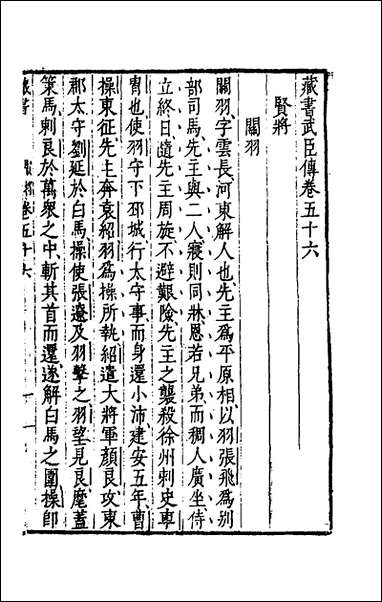 藏書武臣傳卷五十六
賢將
關羽
關羽字雲長河東解人也先主爲平原相以羽張飛爲別
部司馬先主與二人寢則同牀恩若兄弟而稠人廣坐侍
立終日隨先主周旋不避艱險先主之襲殺徐州刺史車
冑也使羽守下邳城行太守事而身還小沛建安五年曹
操東征先主奔袁紹羽爲操所執紹遣大將軍顏良攻東
郡太守劉延於白馬操使張遼及羽擊之羽望見良麾蓋
策馬刺良於萬衆之中斬其首而還遂解白馬之圍操卽
藏書
卷五十六
一